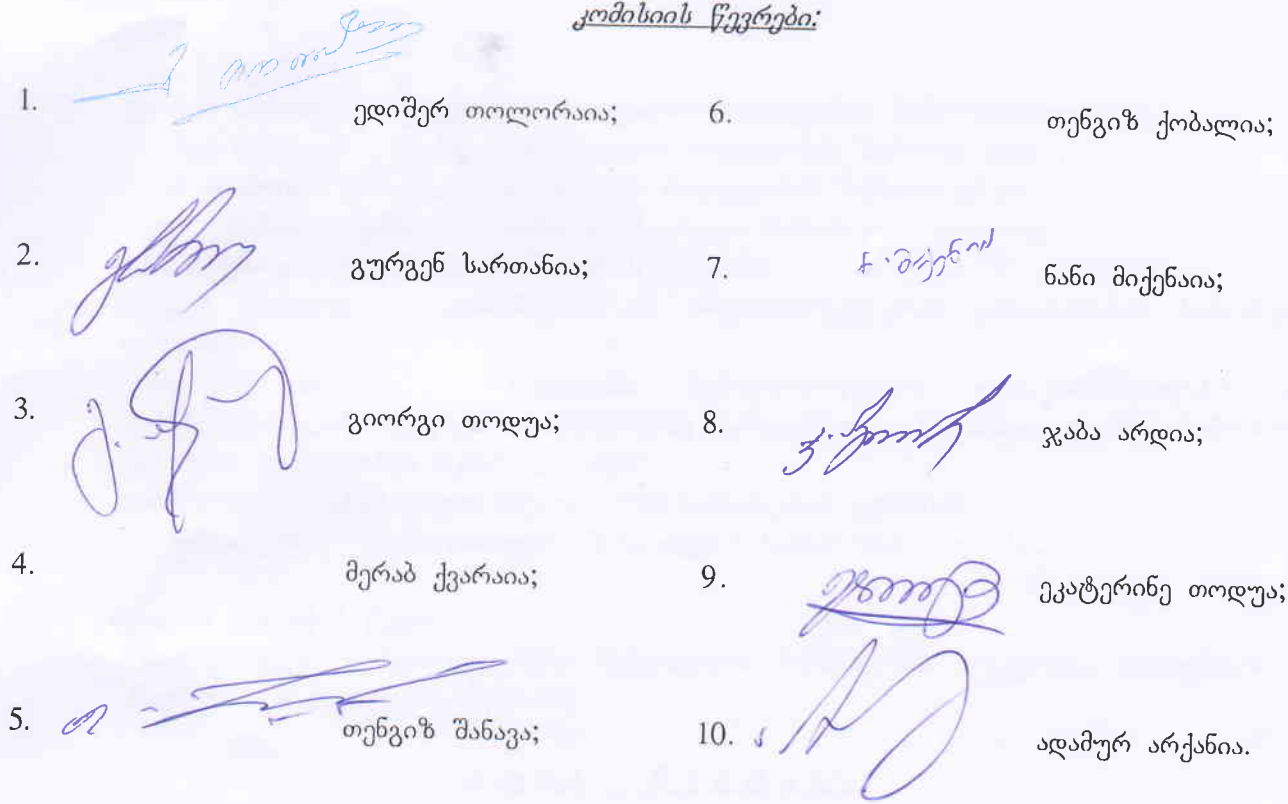 კომისიის წევრები:
1. ედიშერ თოლორაია;
2. გურგენ სართანია;
3. გიორგი თოდუა;
4. მერაბ ქვარაია;
5. თენგიზ შანავა;
6. თენგიზ ქობალია;
7. ნ. მიქენაია ნანი მიქენაია;
8. ჯაბა არდია;
9. ეკატერინე თოდუა;
10. ადამურ არქანია.